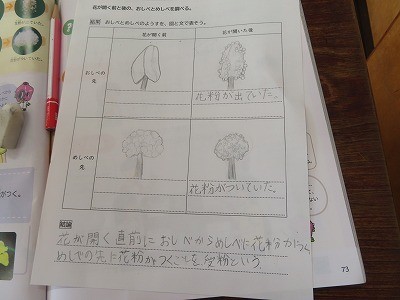 花が開く前と後の、おしべとめしべを調べる。
結果 おしべとめしべのようすを、図と文で表そう。
花が開く前
花が開いた後
おしべの
先
花粉が出ていた。
めしべの
先
花粉がついていた。
結論
花が開く直前に おしべからめしべに花粉がつく
めしべの先に花粉がつくことを受粉という
がつく。
ない
73